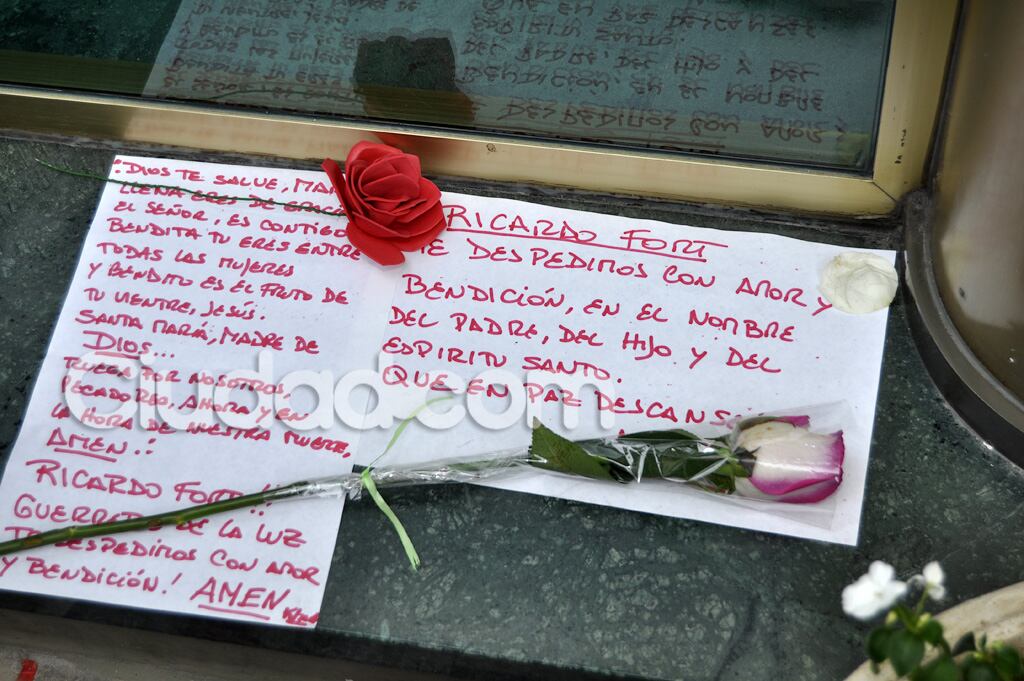 :DIOS TE SALUE, MAR
LLENA ERES DE GRACIA
EL SEÑOR. ES CONTIGO
BENDITA TU ERES ENTRE
TODAS LAS MUJERES
Y BENDITO ES EL FRUTO DE
TU VIENTRE, JESÚS.
SANTA MARÍA, MADRE DE
DIOS...
RUEGA POR NOSOTROS,
PECADORES, AHORA Y EN
LA HORA DE NUESTRA MUERTE,
AMEN.:
RICARDO FORT!
GUERRERO DE LA LUZ
TE DESPEDIMOS CON AMOR
Y BENDICIÓN! AMEN
RICARDO FORT
TE DESPEDIMOS CON AMOR Y
BENDICIÓN, EN EL NOMBRE
DEL PADRE, DEL HIJO Y DEL
ESPIRITU SANTO.
QUE EN PAZ DESCANSE
Ciudad.com